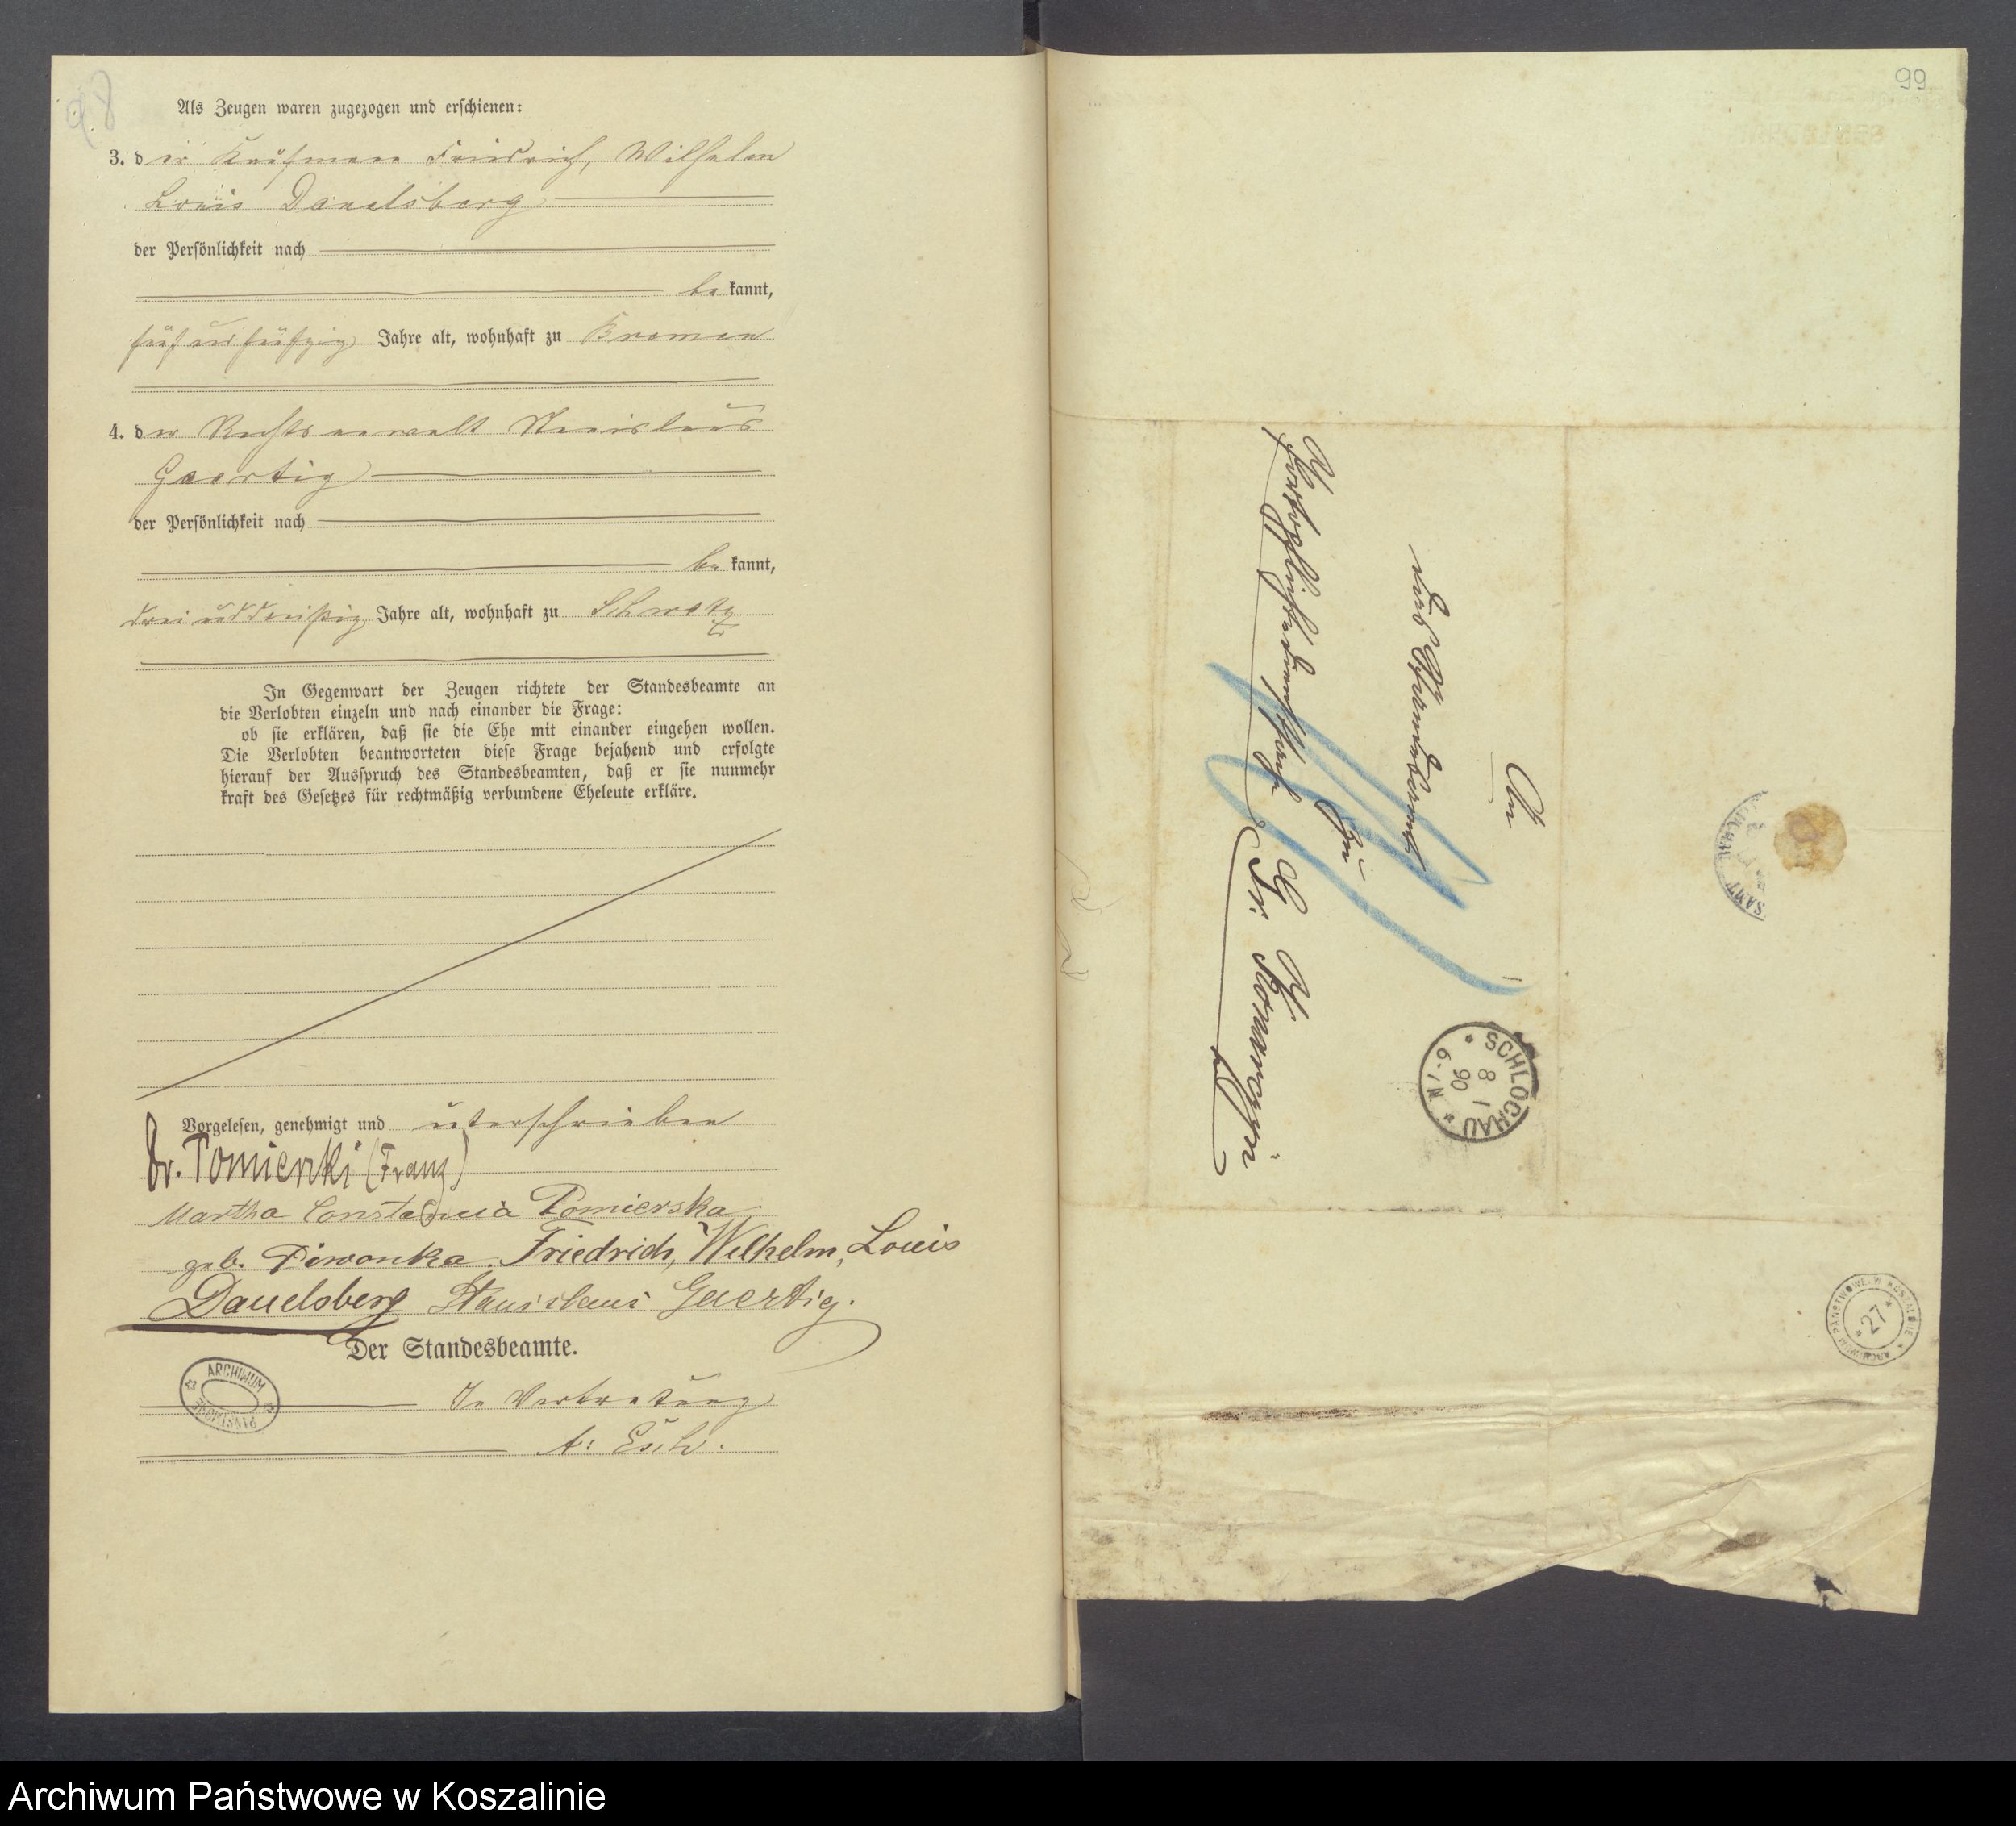 98
Als Zeugen waren zugezogen und erschienen:
3. der Kaufmann Friedrich, Wilhelm
Louis Dauelsberg
der Persönlichkeit nach
be kannt,
fünfundfünfzig Jahre alt, wohnhaft zu Bremen
4. der Rechtsanwalt Stanislaus
Gaertig
der Persönlichkeit nach
be kannt,
dreiunddreißig Jahre alt, wohnhaft zu Schwetz
In Gegenwart der Zeugen richtete der Standesbeamte an
die Verlobten einzeln und nach einander die Frage:
ob sie erklären, daß sie die Ehe mit einander eingehen wollen.
Die Verlobten beantworteten diese Frage bejahend und erfolgte
hierauf der Ausspruch des Standesbeamten, daß er sie nunmehr
kraft des Gesetzes für rechtmäßig verbundene Eheleute erkläre.
Vorgelesen, genehmigt und unterschrieben
Dr. Pomierski (Franz)
Martha Constancia Pomierska
geb. Piwonka. Friedrich, Wilhelm, Louis
Dauelsberg Stanislaus Gaertig.
Der Standesbeamte.
In Vertretung
ARCHIWUM
PAŃSTWOWE
99
An
das
zu
Gr. Konarczyn
SCHLOCHAU
8 1
90
9-1N
SAMT
ARCHIWUM PAŃSTWOWE W KOSZALINIE
* 27 *
Archiwum Państwowe w Koszalinie